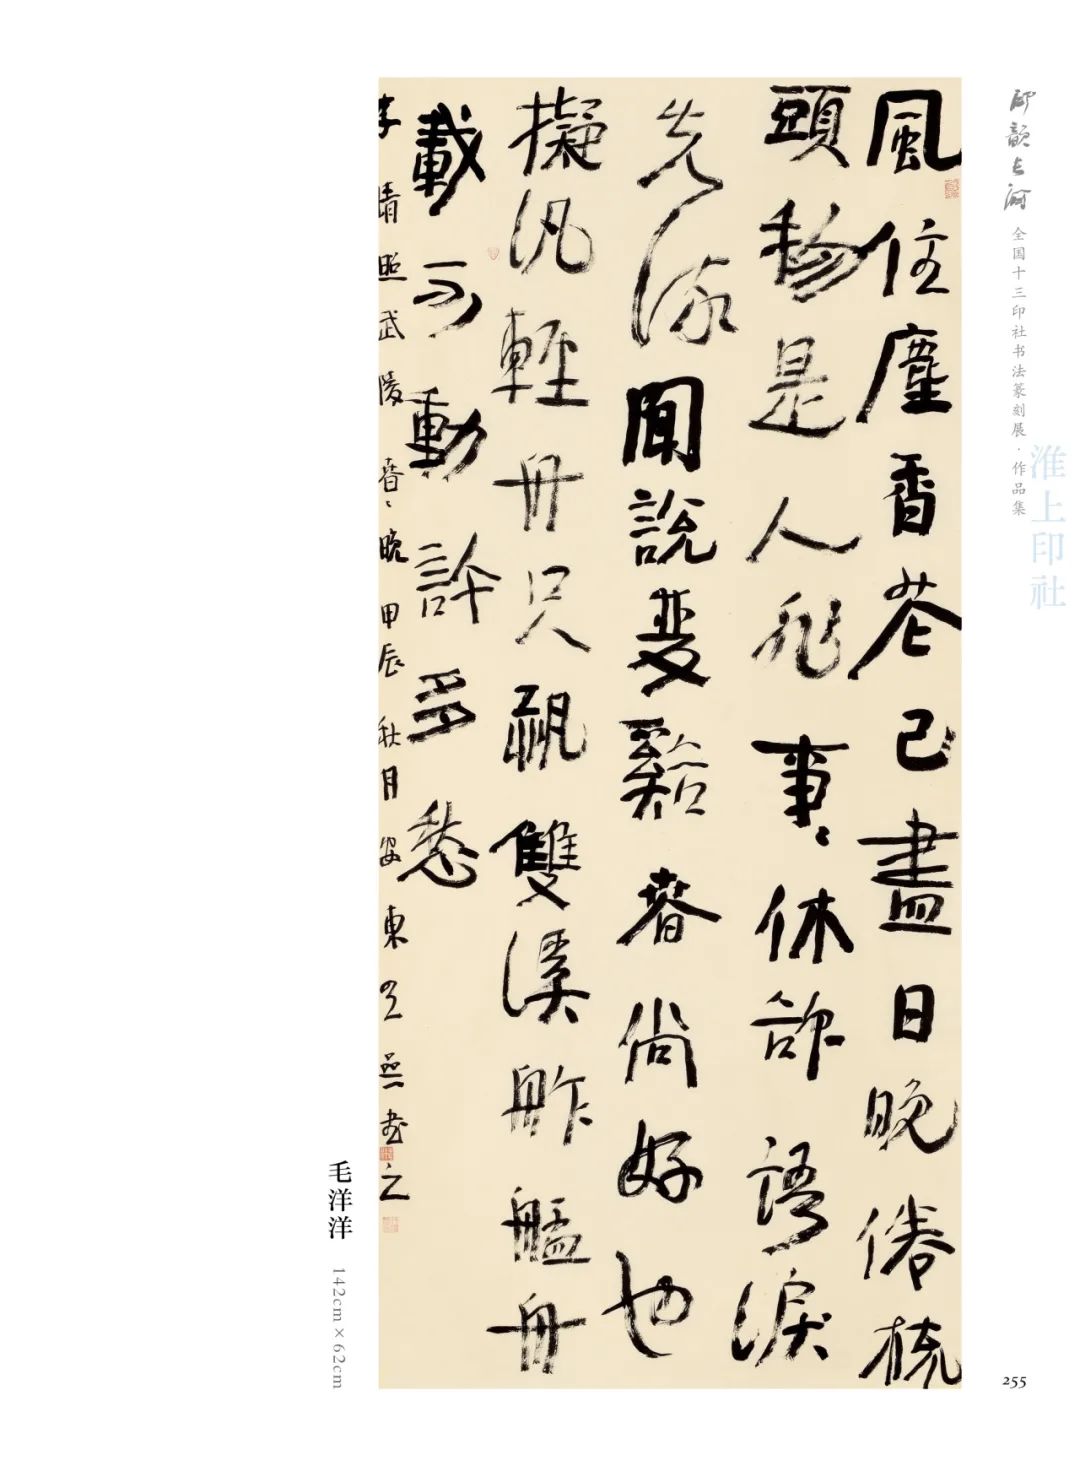 印韻長河 全国十三印社书法篆刻展·作品集
淮上印社
風住塵香花已盡日晚倦梳
頭物是人非事〻休欲語淚
先流聞說雙谿春尚好也
擬汎輕舟只恐雙溪舴艋舟
載不動許多愁
李清照武陵春〻晚甲辰秋月安東 書之
毛洋洋
142cm×62cm
255